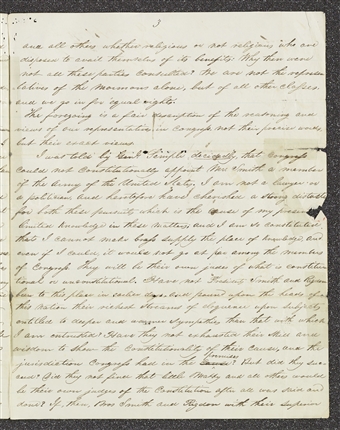 3
and all others whether religious or not religious who are
disposed to avail themselves of its benefits. Why then were
not all these parties consulted? We are not the represen
tatives of the Mormons alone, but of all other classes,
and we go in for equal rights.
The foregoing is a fair description of the reasoning and
views of our representation in Congress not their precise words
but their exact views.
I was told by Genl Semple decidedly, that Congress
could not Constitutionally appoint Mr Smith a member
of the Army of the United States, I am not a lawyer or
a politician and heretofore have cherished a strong distaste
for both these pursuits, which is the cause of my present
limited knowledge in these matters, and I am so constituted
that I cannot make brass supply the place of knowledge, and
even if I could it would not go at par among the members
of Congress. They will be their own judges of what is constitu
tional or unconstitutional. Have not Presidents Smith and Rigdon
been to this place in earlier days. And poured upon the heads of
this Nation their richest streams of eloquence upon a cause
entitled to deeper and warmer sympathy than that with which
I am entrusted? Have they not exhausted their skill and
wisdom to show the Constitutionality of their cause, and the
jurisdiction Congress had in the Premises
But did they suc
ceed? Did they not find that little Matty and all others would
be their own judges of the Constitution after all was said and
done? If, then, Bros Smith and Rigdon with their superior